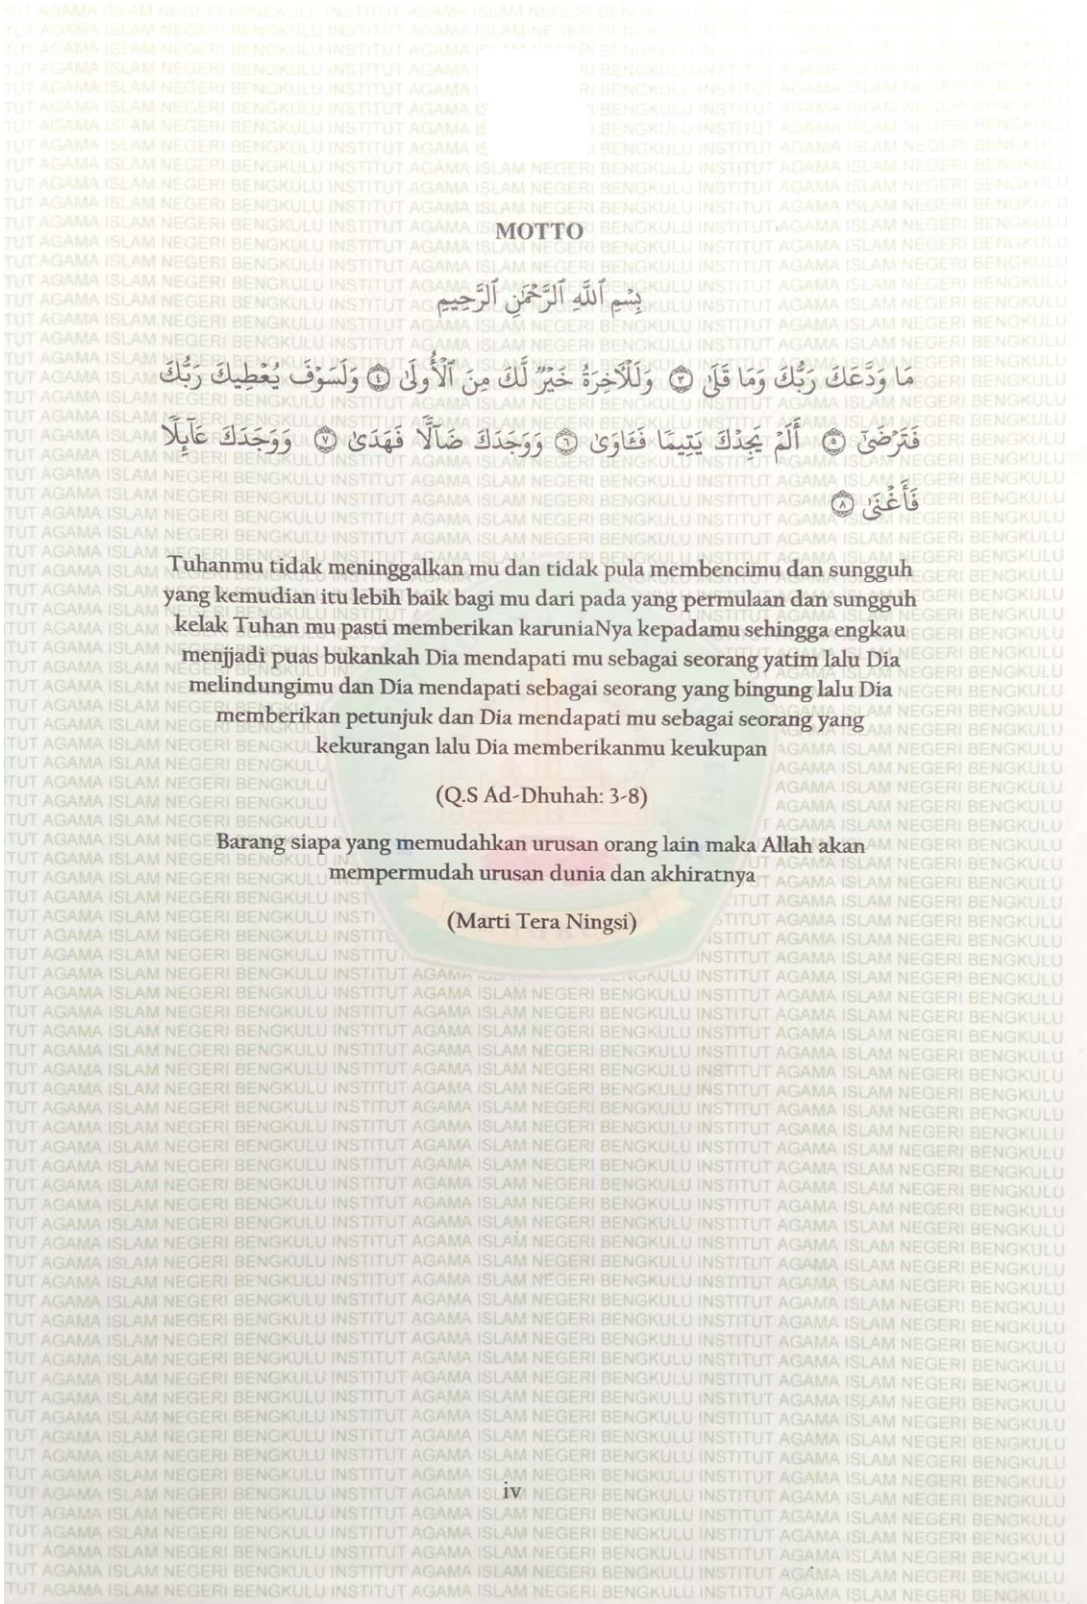 MOTTO
بِسْمِ ٱللَّهِ ٱلرَّحْمَٰنِ ٱلرَّحِيمِ
مَا وَدَّعَكَ رَبُّكَ وَمَا قَلَىٰ ٣ وَلَلْأٓخِرَةُ خَيْرٌ لَّكَ مِنَ ٱلْأُولَىٰ ٤ وَلَسَوْفَ يُعْطِيكَ رَبُّكَ
فَتَرْضَىٰٓ ٥ أَلَمْ يَجِدْكَ يَتِيمًا فَـَٔاوَىٰ ٦ وَوَجَدَكَ ضَآلًّا فَهَدَىٰ ٧ وَوَجَدَكَ عَآئِلًا
فَأَغْنَىٰ ٨
Tuhanmu tidak meninggalkan mu dan tidak pula membencimu dan sungguh
yang kemudian itu lebih baik bagi mu dari pada yang permulaan dan sungguh
kelak Tuhan mu pasti memberikan karuniaNya kepadamu sehingga engkau
menjjadi puas bukankah Dia mendapati mu sebagai seorang yatim lalu Dia
melindungimu dan Dia mendapati sebagai seorang yang bingung lalu Dia
memberikan petunjuk dan Dia mendapati mu sebagai seorang yang
kekurangan lalu Dia memberikanmu keukupan
(Q.S Ad-Dhuhah: 3-8)
Barang siapa yang memudahkan urusan orang lain maka Allah akan
mempermudah urusan dunia dan akhiratnya
(Marti Tera Ningsi)
iv